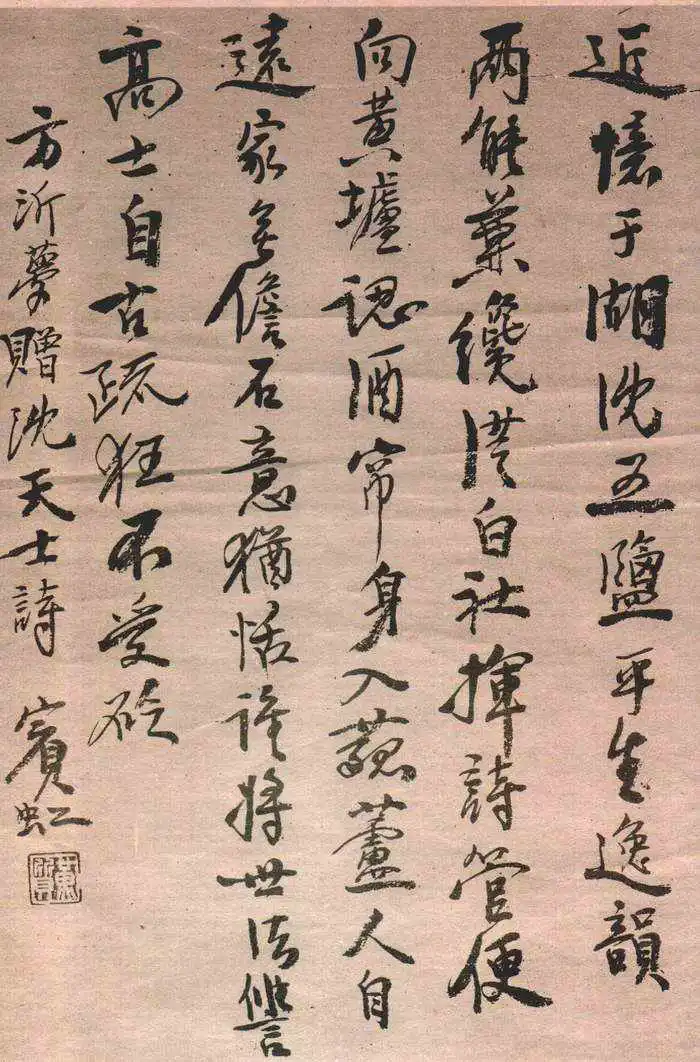 近懷于湖沈五鹽平生逸韻
兩能兼纔從白社揮詩管便
向黃壚認酒帘身入菰蘆人自
遠家無儋石意猶恬誰將世法讐
高士自古疏狂不受砭
方沂夢贈沈天士詩 賓虹
黃質